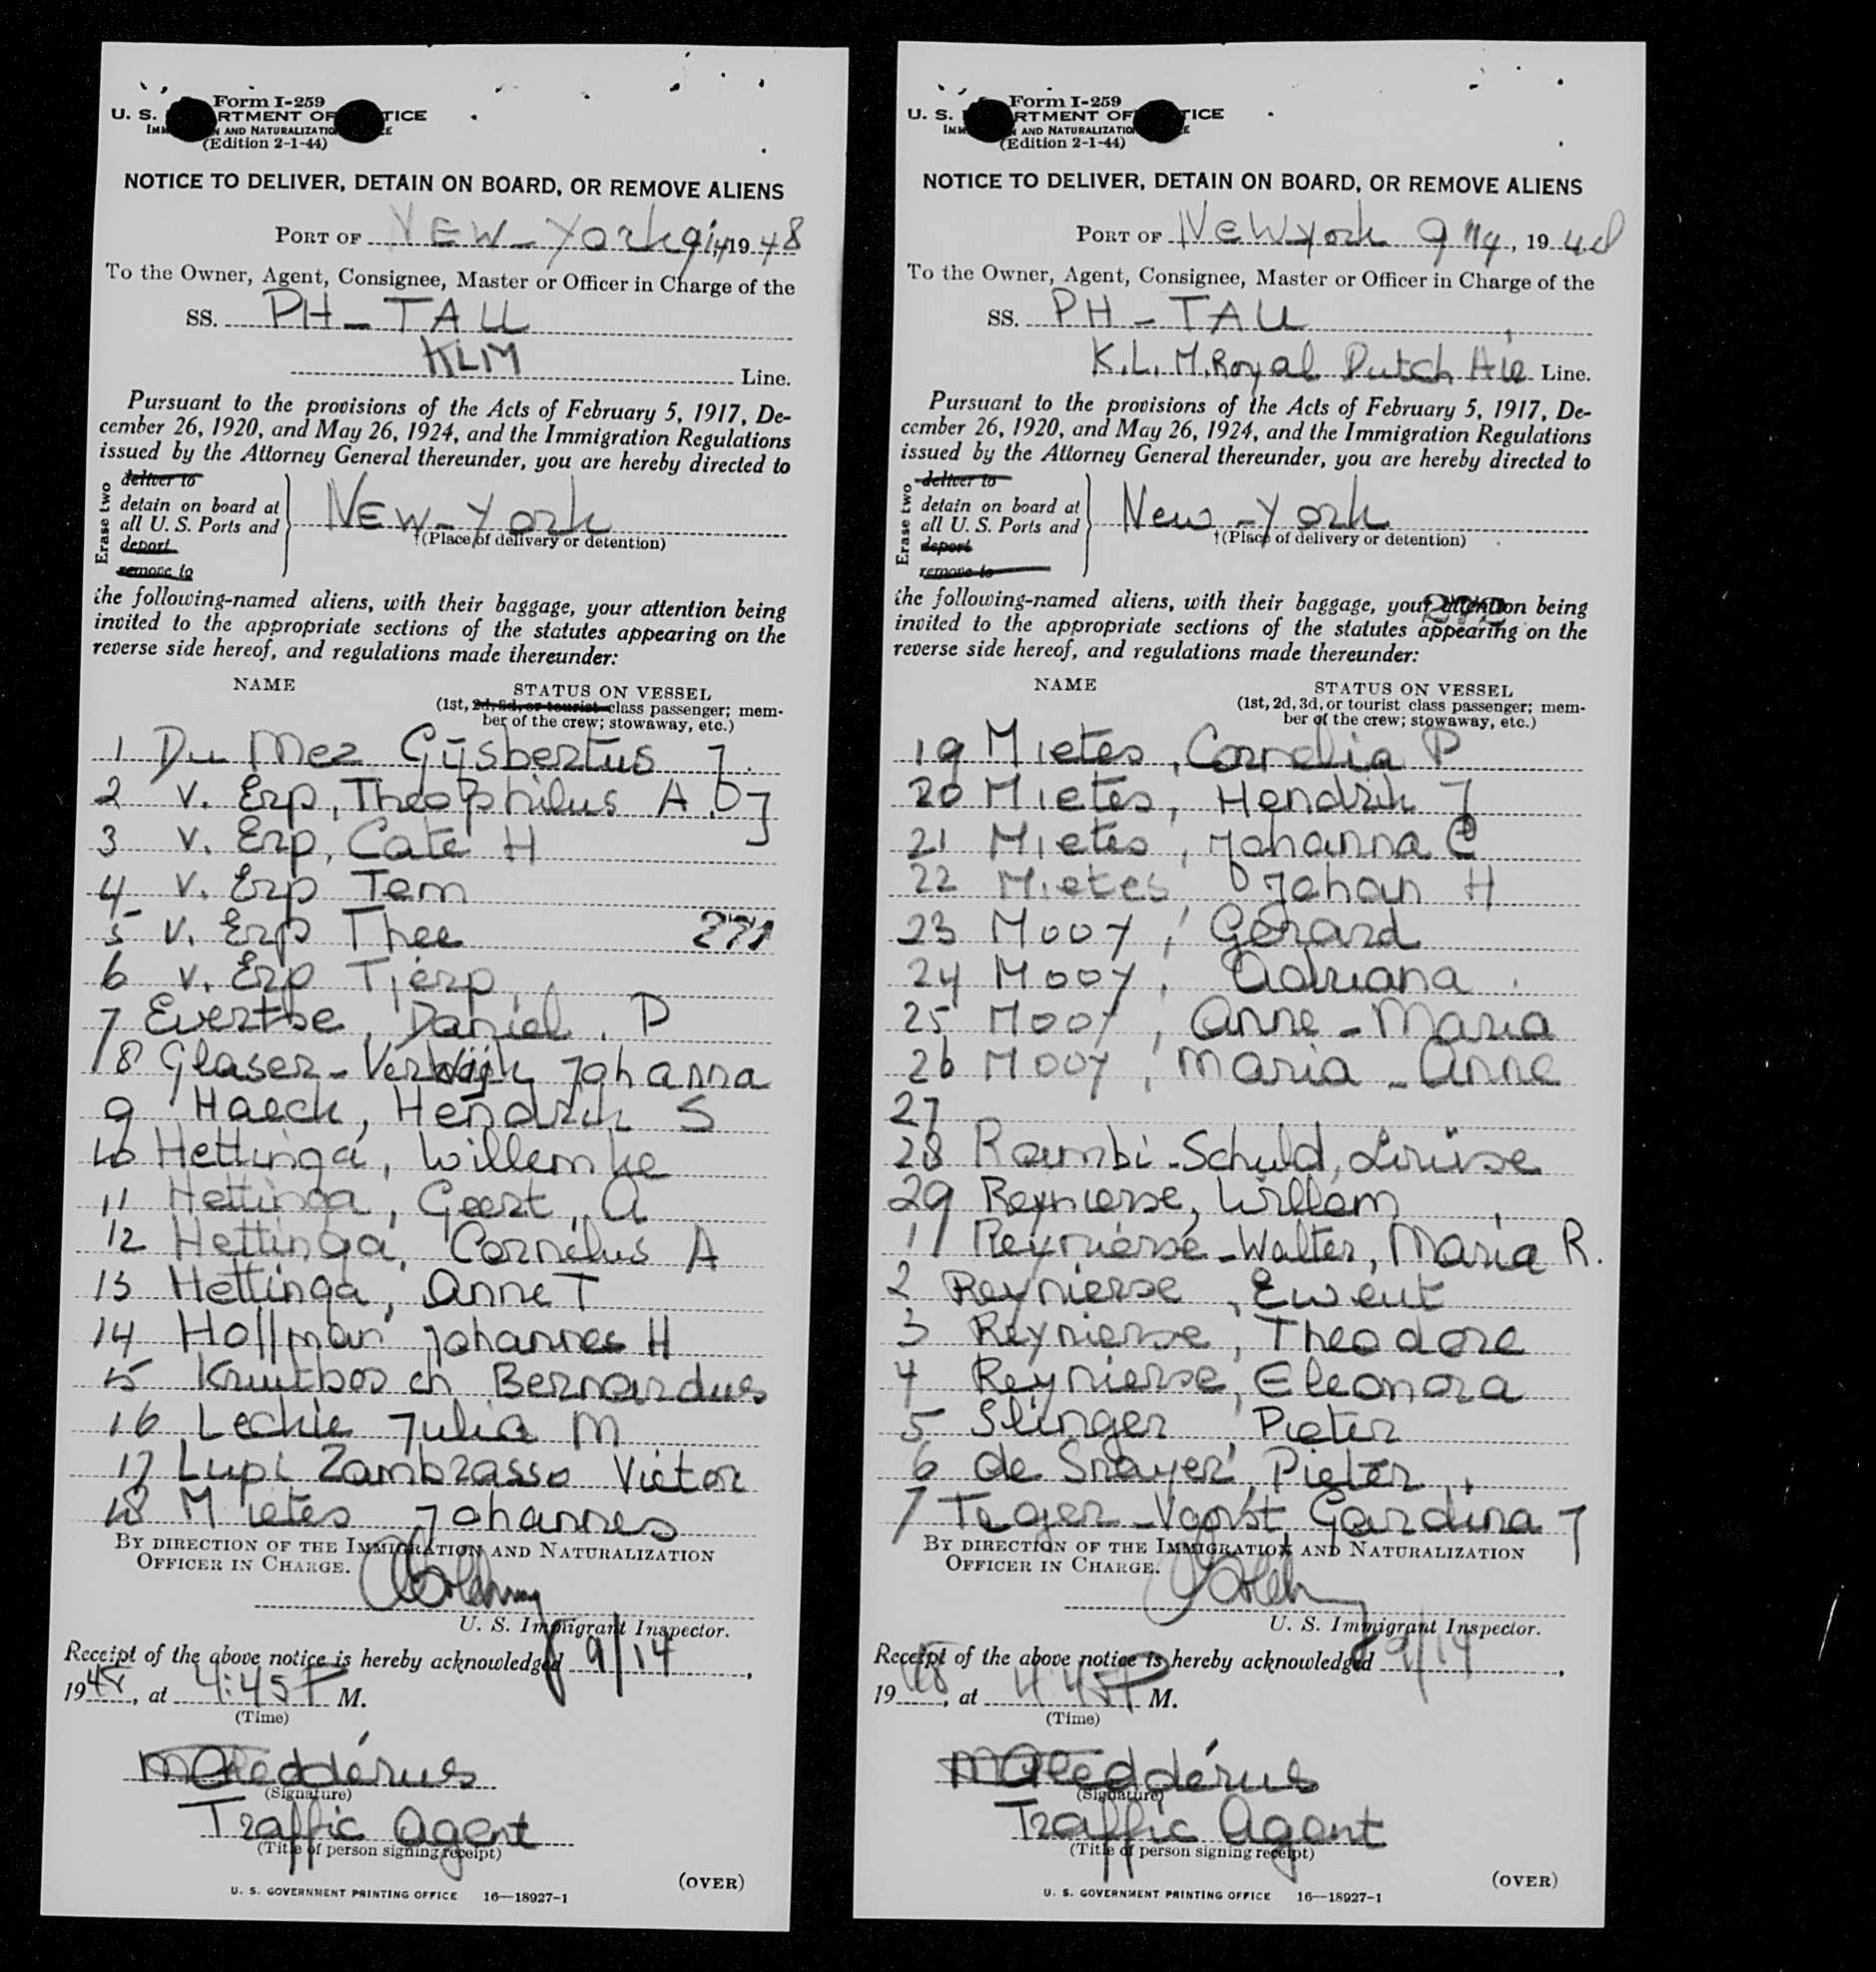 Form I-259
U. S. RTMENT OF TICE
IMM N AND NATURALIZATIO E
(Edition 2-1-44)
NOTICE TO DELIVER, DETAIN ON BOARD, OR REMOVE ALIENS
PORT OF NEW-York 9/14 19 48
To the Owner, Agent, Consignee, Master or Officer in Charge of the
SS. PH-TAU
KLM Line.
Pursuant to the provisions of the Acts of February 5, 1917, De-
cember 26, 1920, and May 26, 1924, and the Immigration Regulations
issued by the Attorney General thereunder, you are hereby directed to
Erase two
deliver to
detain on board at
all U. S. Ports and
deport
remove to
NEW-York
†(Place of delivery or detention)
the following-named aliens, with their baggage, your attention being
invited to the appropriate sections of the statutes appearing on the
reverse side hereof, and regulations made thereunder:
NAME STATUS ON VESSEL
(1st, 2d, 3d, or tourist class passenger; mem-
ber of the crew; stowaway, etc.)
1 Du Mez Gijsbertus J.
2 v. Erp, Theophilus A.D J
3 v. Erp, Cate H
4 v. Erp Tem
5 v. Erp Thee 271
6 v. Erp Tjerp
7 Evertse, Daniel. P
8 Glaser-Verwijk Johanna
9 Haeck, Hendrik S
10 Hettinga, Willemke
11 Hettinga, Geert, A
12 Hettinga, Cornelus A
13 Hettinga, Anne T
14 Hollman Johannes H
15 Kruitbosch Bernardus
16 Leckie Julia M
17 Lupi Zambrasso Victor
18 Mietes Johannes
BY DIRECTION OF THE IMMIGRATION AND NATURALIZATION
OFFICER IN CHARGE.
U. S. Immigrant Inspector.
Receipt of the above notice is hereby acknowledged 9/14,
1948, at 4:45 P M.
(Time)
(Signature)
Traffic Agent
(Title of person signing receipt)
(OVER)
U. S. GOVERNMENT PRINTING OFFICE 16—18927-1
Form I-259
U. S. RTMENT OF TICE
IMM AND NATURALIZATIO E
(Edition 2-1-44)
NOTICE TO DELIVER, DETAIN ON BOARD, OR REMOVE ALIENS
PORT OF New york 9/14, 19 48
To the Owner, Agent, Consignee, Master or Officer in Charge of the
SS. PH-TAU
K.L.M. Royal Dutch Air Line.
Pursuant to the provisions of the Acts of February 5, 1917, De-
cember 26, 1920, and May 26, 1924, and the Immigration Regulations
issued by the Attorney General thereunder, you are hereby directed to
Erase two
deliver to
detain on board at
all U. S. Ports and
deport
remove to
New-York
†(Place of delivery or detention)
the following-named aliens, with their baggage, your attention being
invited to the appropriate sections of the statutes appearing on the
reverse side hereof, and regulations made thereunder:
NAME STATUS ON VESSEL
(1st, 2d, 3d, or tourist class passenger; mem-
ber of the crew; stowaway, etc.)
19 Mietes, Cornelia P
20 Mietes, Hendrik J
21 Mietes, Johanna C
22 Mietes, Johan H
23 Mooy, Gerard
24 Mooy, Adriana
25 Mooy, Anne-Maria
26 Mooy, Maria-Anne
27
28 Rambi-Schuld, Louise
29 Reynierse, Willem
1 Reynierse-Walter, Maria R.
2 Reynierse, Ewout
3 Reynierse, Theodore
4 Reynierse, Eleonora
5 Slinger Pieter
6 de Snayer, Pieter
7 Teger-Vorst, Gardina J
BY DIRECTION OF THE IMMIGRATION AND NATURALIZATION
OFFICER IN CHARGE.
U. S. Immigrant Inspector.
Receipt of the above notice is hereby acknowledged 9/14,
1948, at 4:45P M.
(Time)
(Signature)
Traffic Agent
(Title of person signing receipt)
(OVER)
U. S. GOVERNMENT PRINTING OFFICE 16—18927-1